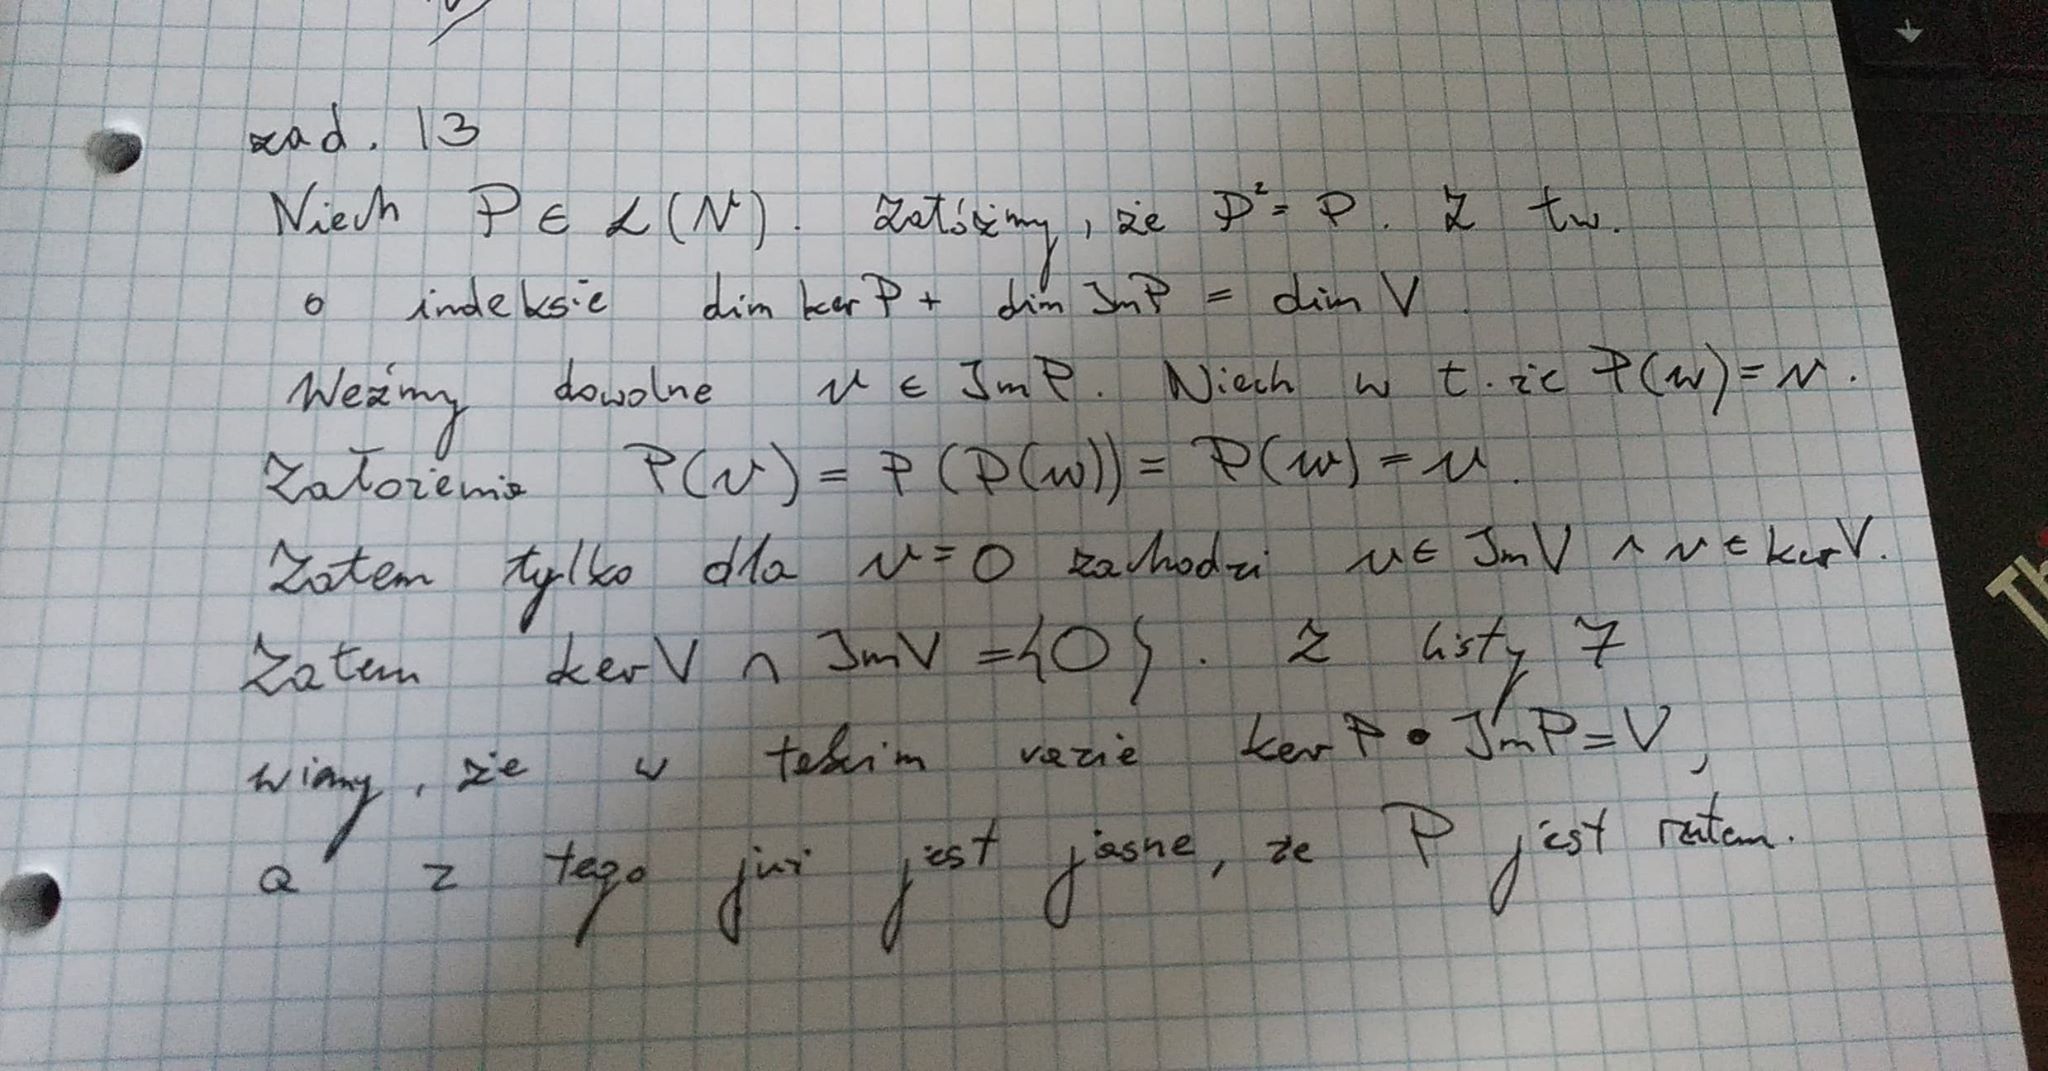 zad. 13
Niech P ∈ L(V). Załóżmy, że P² = P. Z tw.
o indeksie dim ker P + dim Im P = dim V.
Weźmy dowolne v ∈ Im P. Niech w t. że P(w) = v.
Założenia P(v) = P(P(w)) = P(w) = v.
Zatem tylko dla v = 0 zachodzi v ∈ Im V ∧ v ∈ ker V.
Zatem ker V ∩ Im V = {0}. Z listy 7
wiemy, że w takim razie ker P • Im P = V,
a z tego już jest jasne, że P jest rzutem.
Th